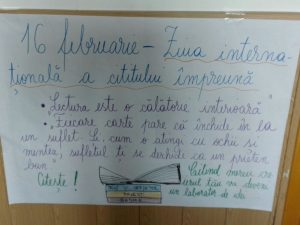 16 februarie – Ziua interna-
țională a cititului împreună
• „Lectura este o călătorie interioară
• „Fiecare carte pare că închide în ea
un suflet. Și cum o atingi cu ochii și
mintea, sufletul ți se deschide ca un prieten
bun”
Citește!
Citind mereu cre-
ierul tău va deveni
un laborator de idei